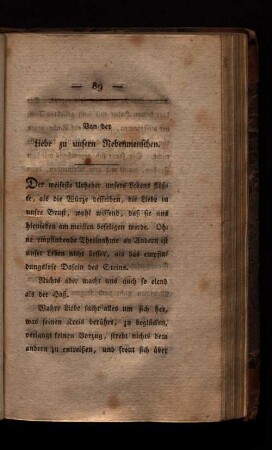 — 89 —
Von der
Liebe zu unsern Nebenmenschen.
Der weiseste Urheber unsers Lebens flöß-
te, als die Würze desselben, die Liebe in
unsre Brust, wohl wissend, daß sie uns
hienieden am meisten beseligen würde. Oh-
ne empfindende Theilnahme an Andern ist
unser Leben nichts besser, als das empfin-
dungslose Dasein des Steins.
Nichts aber macht uns auch so elend
als der Haß.
Wahre Liebe sucht alles um sich her,
was seinen Kreis berührt, zu beglücken,
verlangt keinen Vorzug, strebt nichts dem
andern zu entreißen, und freut sich über